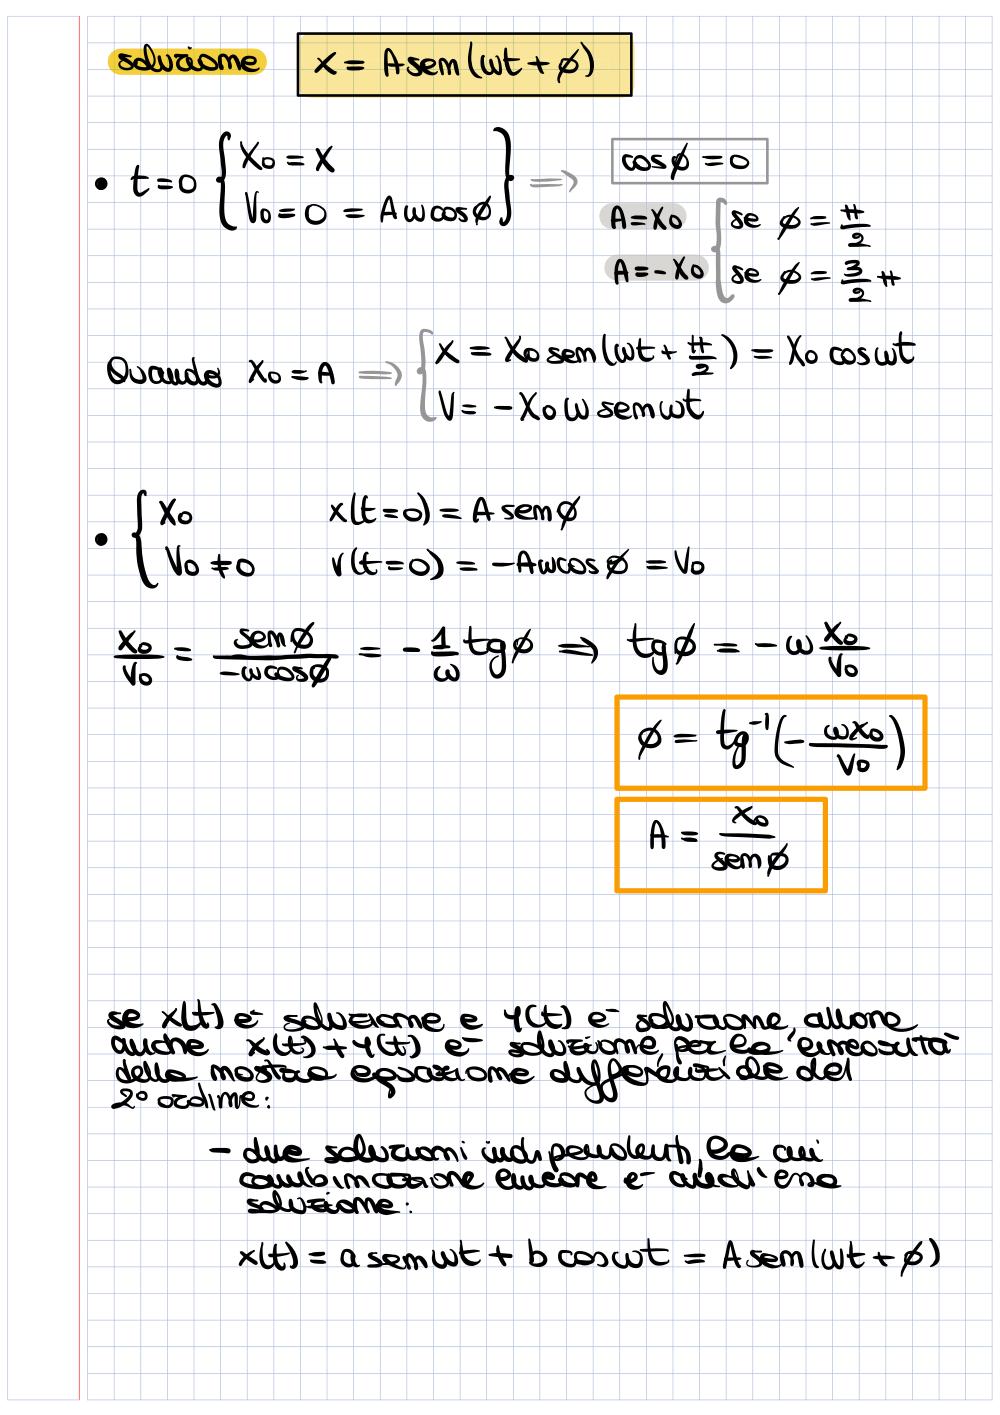 soluzione x = A sen (ωt + ϕ)
• t = 0 { X₀ = X
V₀ = 0 = A ω cos ϕ } ⇒ cos ϕ = 0
A = X₀ { se ϕ = π/2
A = - X₀ se ϕ = 3/2 π
Quando X₀ = A ⇒ { X = X₀ sen (ωt + π/2) = X₀ cos ωt
V = - X₀ ω sen ωt
• { X₀ x(t=0) = A sen ϕ
V₀ ≠ 0 v(t=0) = -Aωcos ϕ = V₀
X₀/V₀ = sen ϕ/-ωcos ϕ = - 1/ω tg ϕ ⇒ tg ϕ = - ω X₀/V₀
ϕ = tg⁻¹ (- ωX₀/V₀)
A = X₀/sen ϕ
se x(t) è soluzione e y(t) è soluzione, allora
anche x(t) + y(t) è soluzione, per la linearità
della nostra equazione differenziale del
2° ordine:
- due soluzioni indipendenti, la cui
combinazione lineare è anch'essa
soluzione:
x(t) = a sen ωt + b cos ωt = A sen (ωt + ϕ)